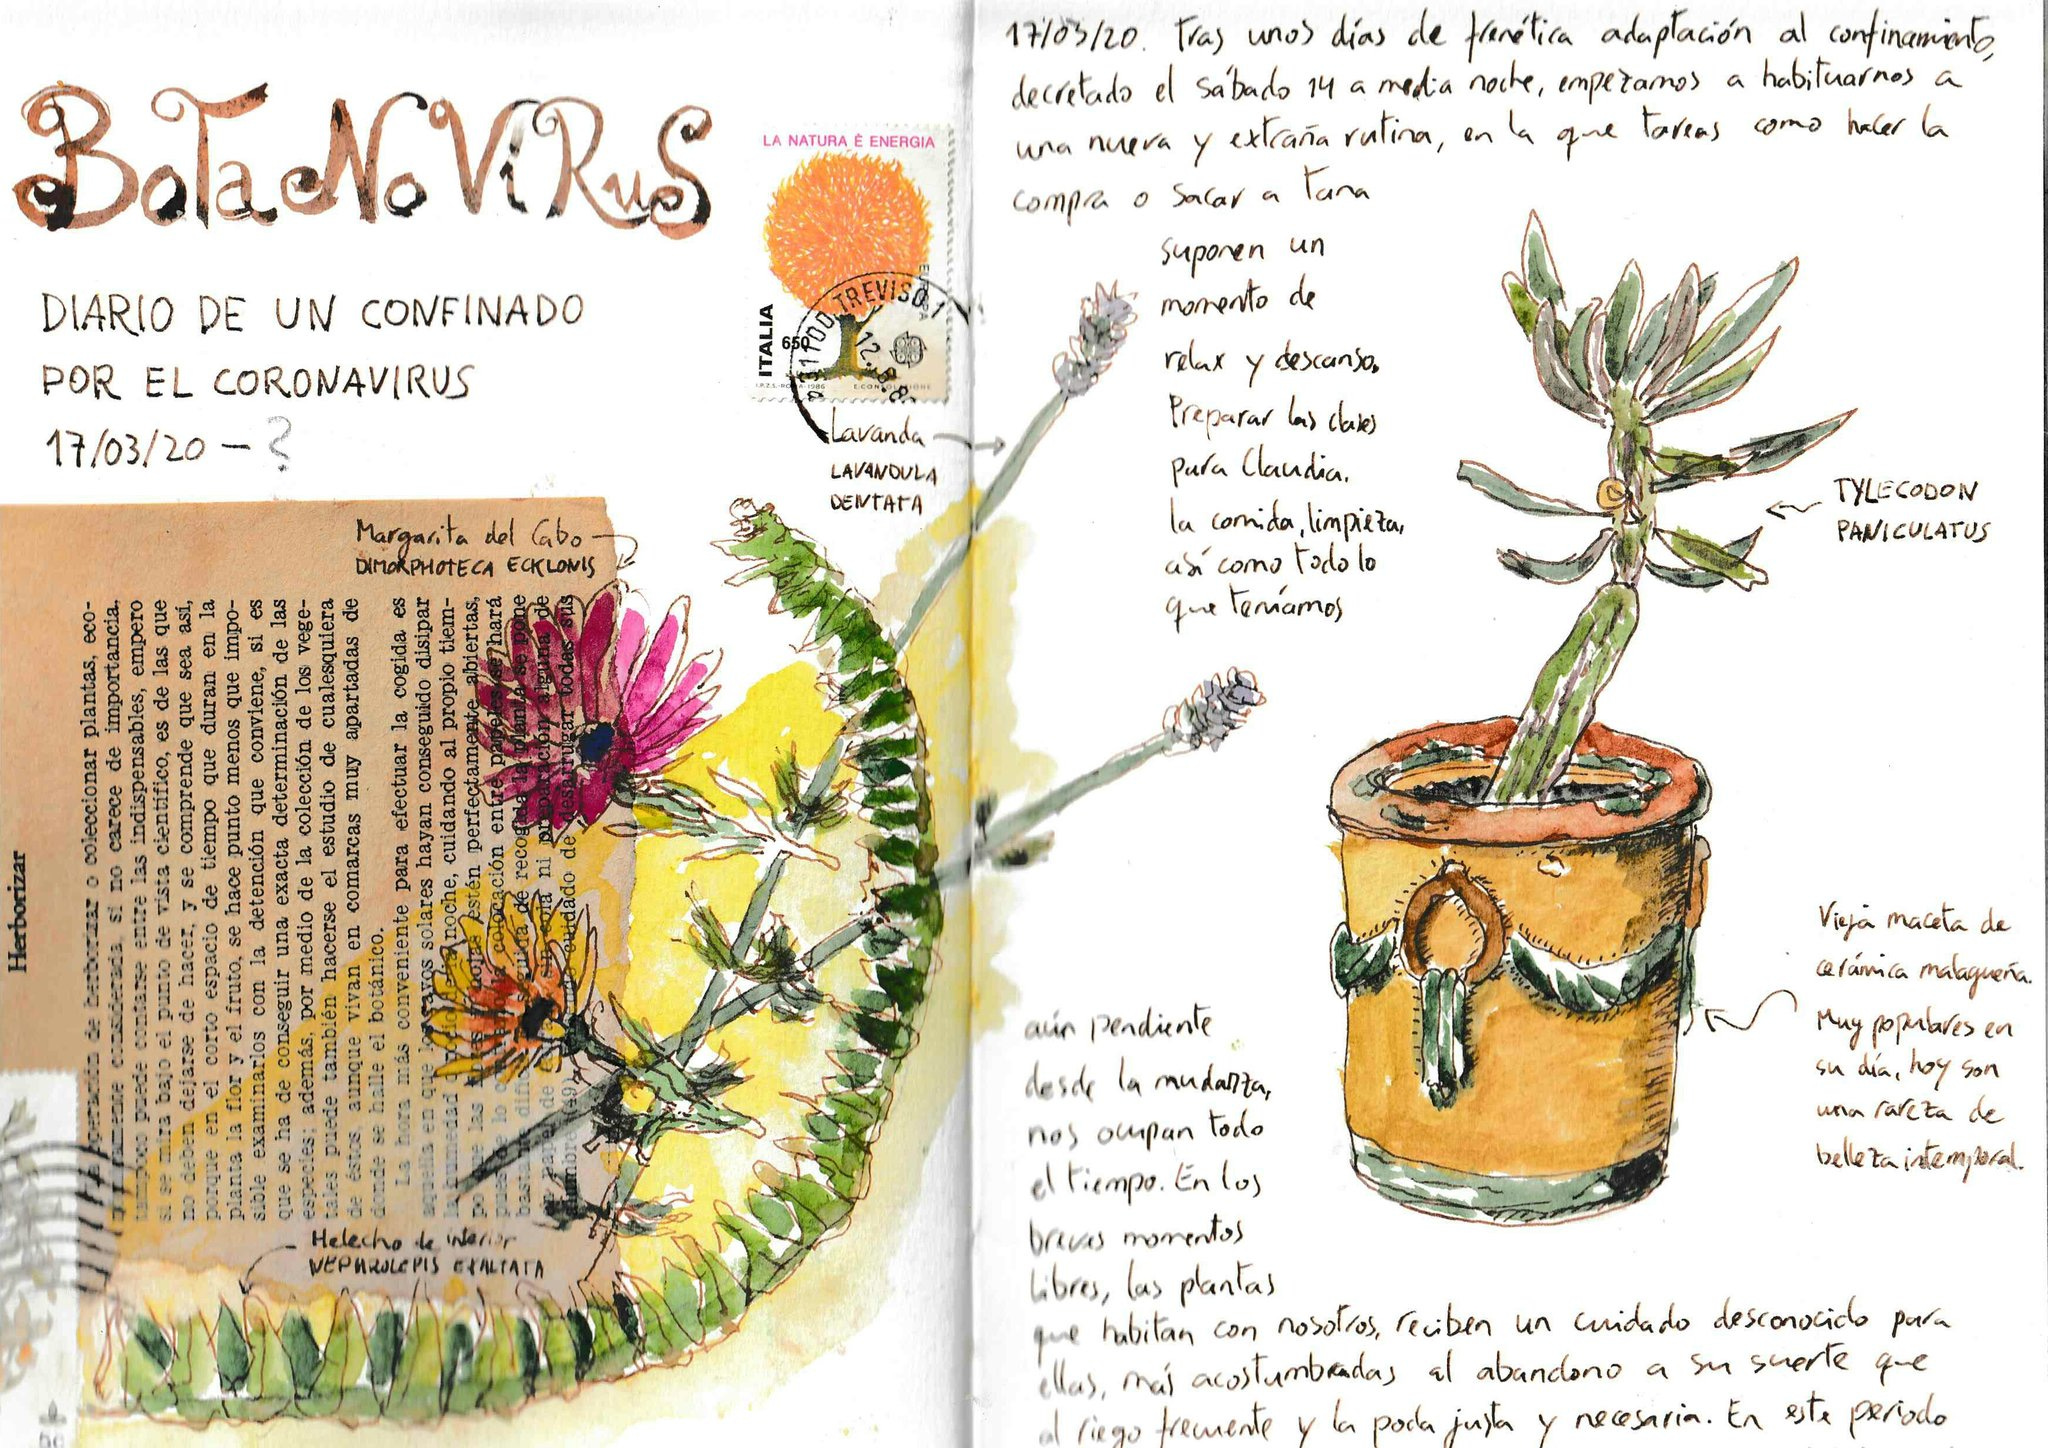 BoTaNoViRuS
DIARIO DE UN CONFINADO
POR EL CORONAVIRUS
17/03/20 – ?
LA NATURA È ENERGIA
ITALIA
650
EUROPA
I.P.Z.S.-ROMA-1986
E. CONSOLAZIONE
31100 TREVISO 1
12.8.8
Lavanda
LAVANDULA
DENTATA
Margarita del Cabo
DIMORPHOTECA ECKLONIS
Herborizar
operación de herborizar o coleccionar plantas, eco-
nómicamente considerada, si no carece de importancia,
tampoco puede contarse entre las indispensables, empero
si se mira bajo el punto de vista científico, es de las que
no deben dejarse de hacer, y se comprende que sea así,
porque en el corto espacio de tiempo que duran en la
planta la flor y el fruto, se hace punto menos que impo-
sible examinarlos con la detención que conviene, si es
que se ha de conseguir una exacta determinación de las
especies; además, por medio de la colección de los vege-
tales puede también hacerse el estudio de cualesquiera
de éstos, aunque vivan en comarcas muy apartadas de
donde se halle el botánico.
La hora más conveniente para efectuar la cogida es
aquella en que los rayos solares hayan conseguido disipar
la humedad de la noche, cuidando al propio tiem-
po que las hojas estén perfectamente abiertas,
pues de lo colocación entre papeles se hará
bastante difícil seguida de recogida la planta se pone
de papel sin cola ni preparación alguna de
cuidado de desarrugar todas sus
Helecho de interior
NEPHROLEPIS EXALTATA
17/03/20. Tras unos días de frenética adaptación al confinamiento,
decretado el sábado 14 a media noche, empezamos a habituarnos a
una nueva y extraña rutina, en la que tareas como hacer la
compra o sacar a Tana
suponen un
momento de
relax y descanso.
Preparar las clases
para Claudia,
la comida, limpieza,
así como todo lo
que teníamos
TYLECODON
PANICULATUS
Vieja maceta de
cerámica malagueña.
Muy populares en
su día, hoy son
una rareza de
belleza intemporal.
aún pendiente
desde la mudanza,
nos ocupan todo
el tiempo. En los
breves momentos
libres, las plantas
que habitan con nosotros, reciben un cuidado desconocido para
ellas, más acostumbradas al abandono a su suerte que
al riego frecuente y la poda justa y necesaria. En este periodo